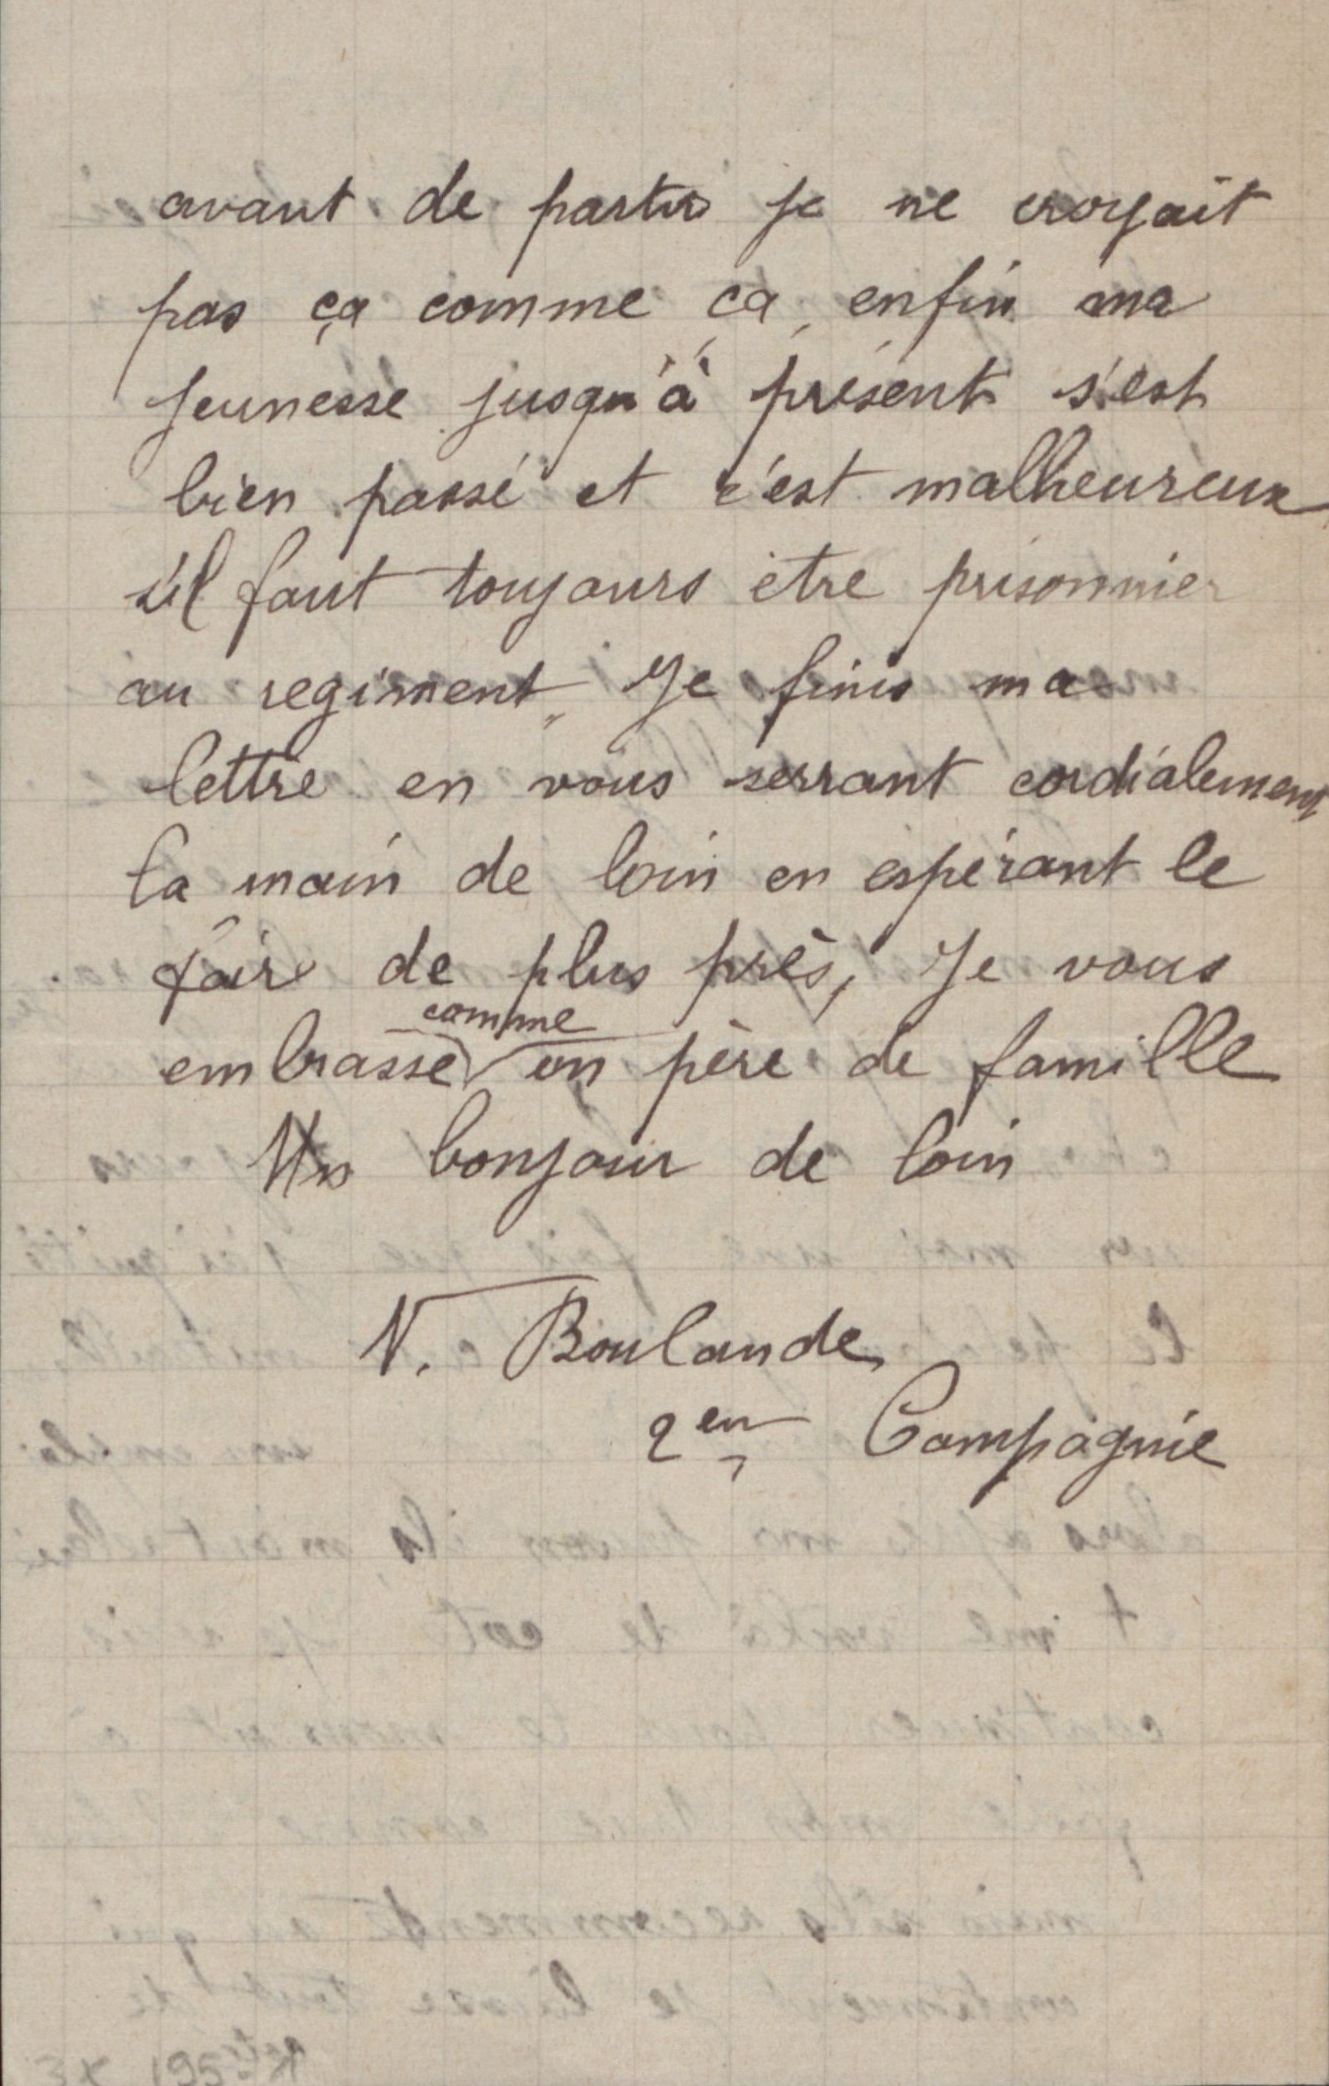 avant de partir je ne croyait
pas ça comme ça, enfin ma
jeunesse jusqu'à présent s'est
bien passé et c'est malheureux
s'il faut toujours être prisonnier
au regiment, Je finis ma
lettre en vous serrant cordialement
la main de loin en espérant le
fair de plus près, Je vous
comme
embrasse un père de famille
Un bonjour de loin
N. Boulande
2em Compagnie